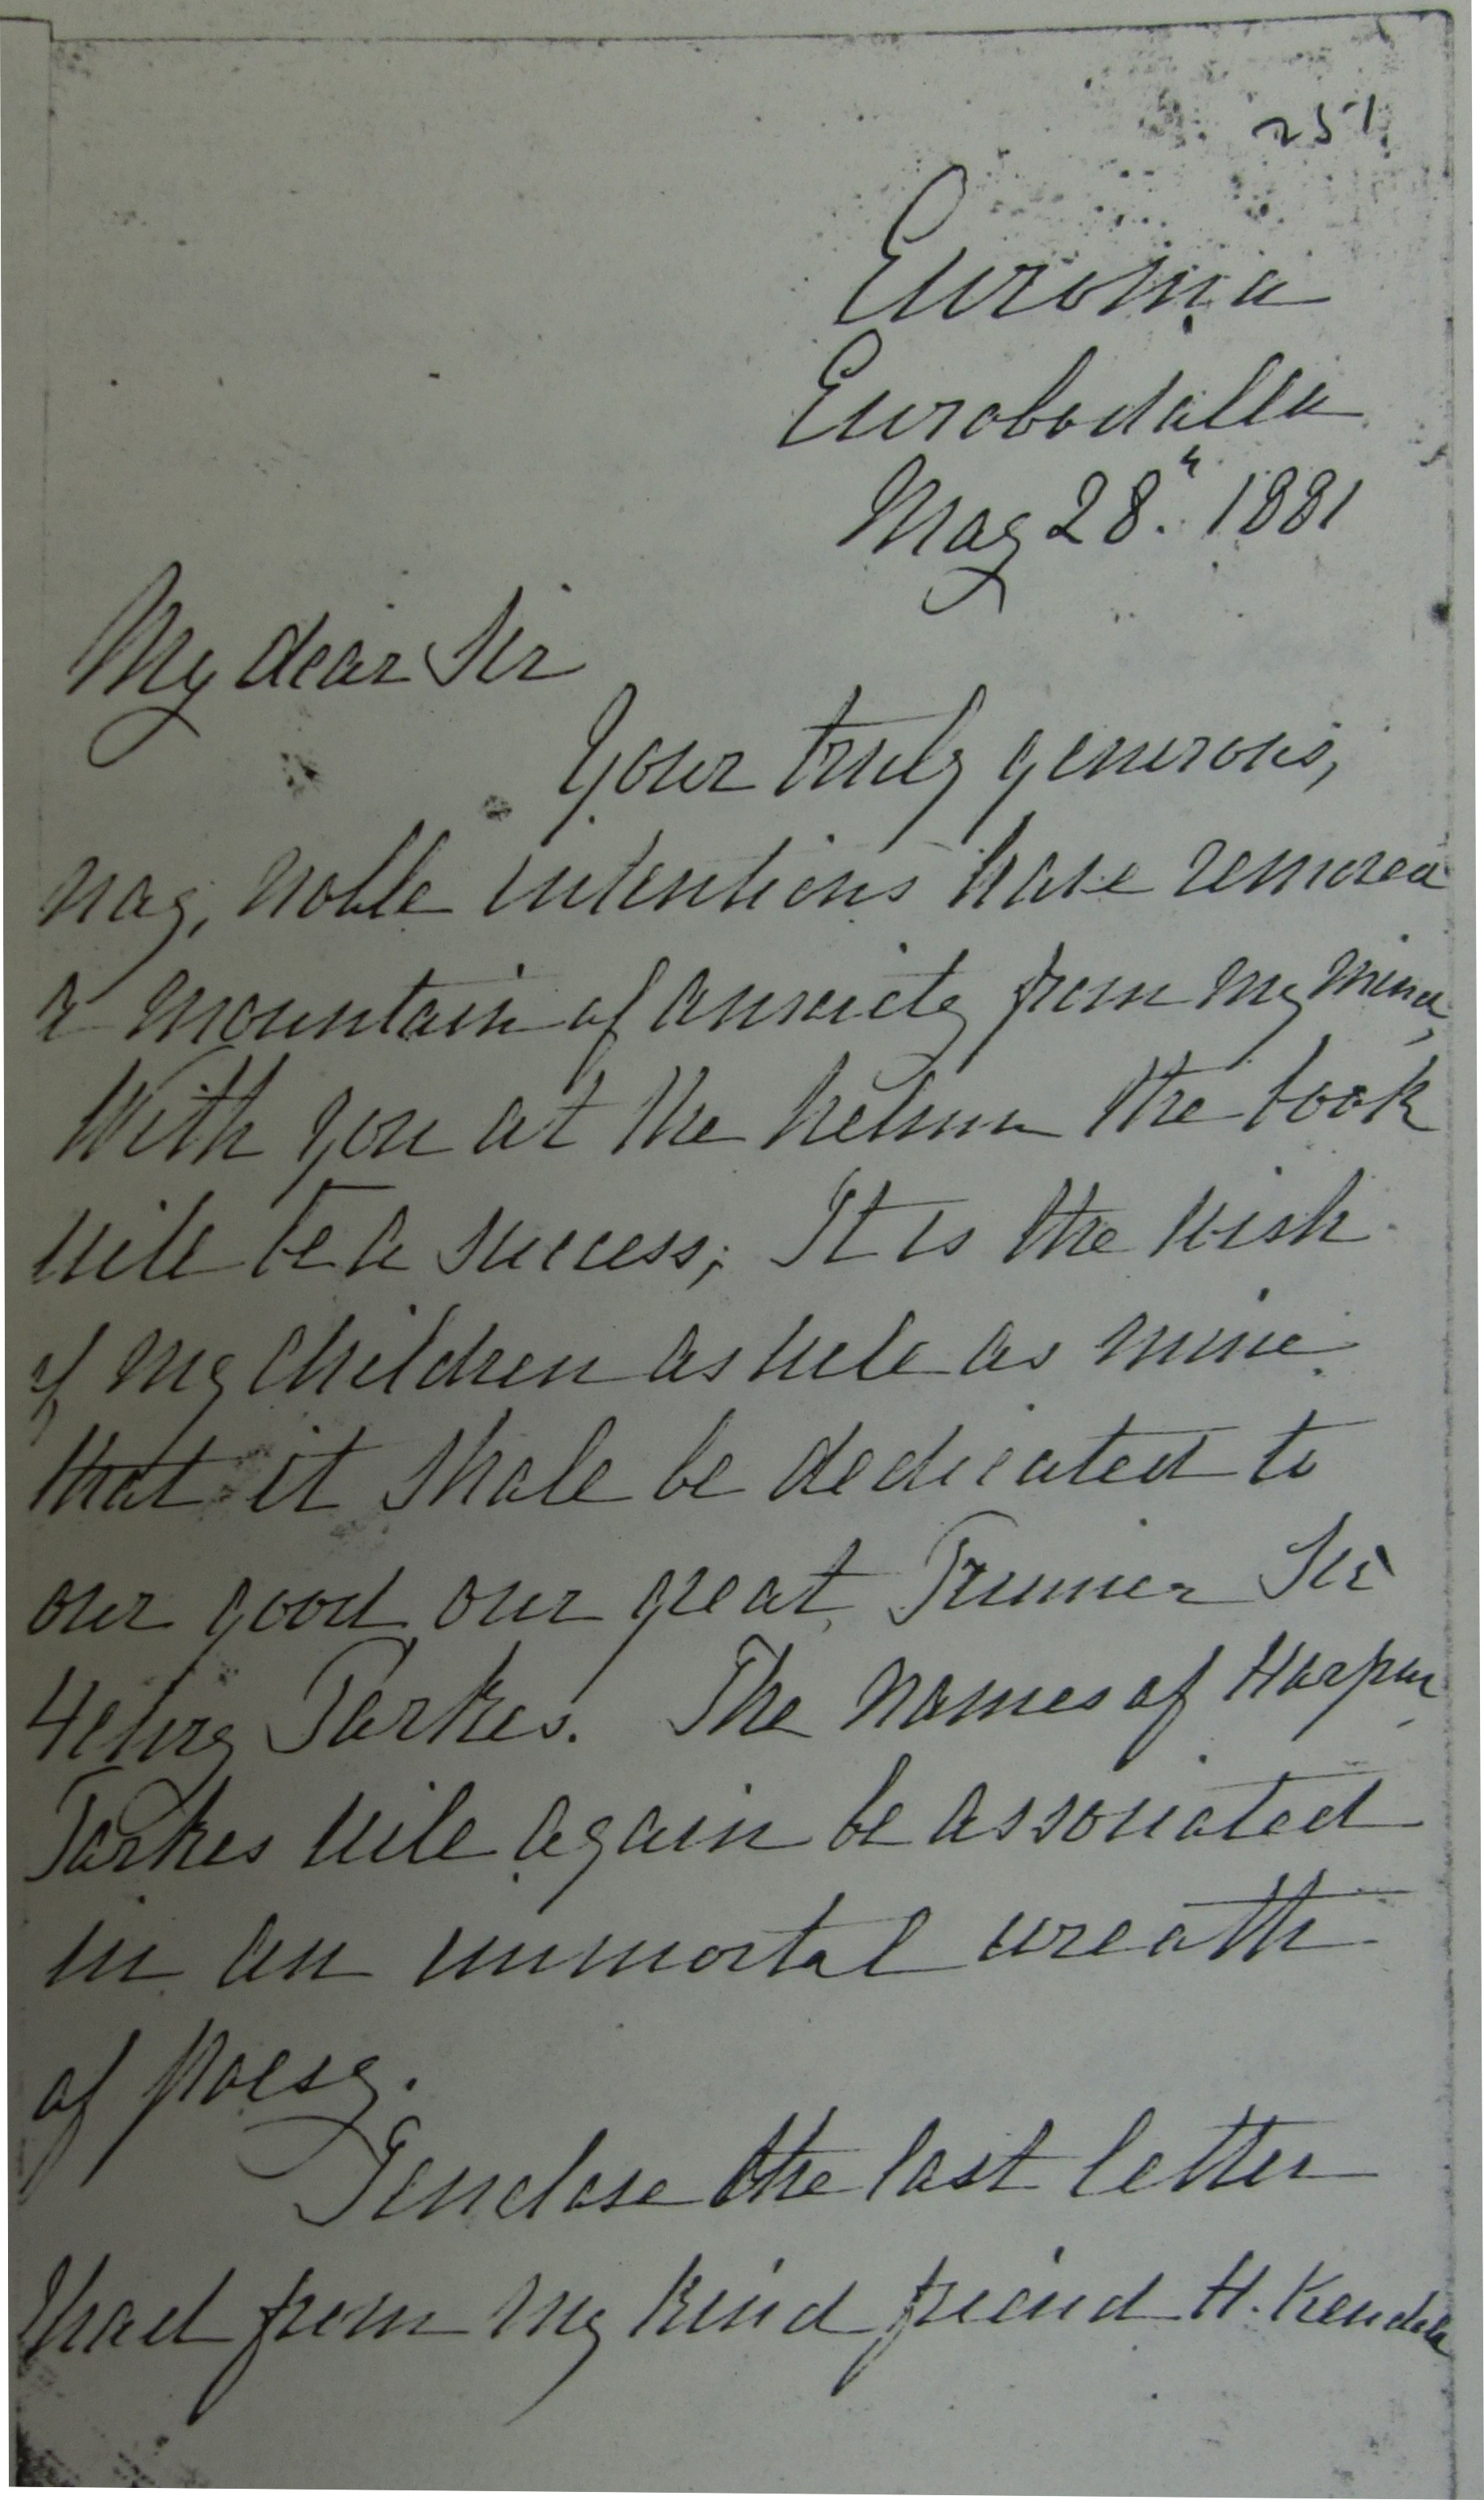 251
Euroma
Eurobodalla
May 28th. 1881
My dear Sir
Your truly generous,
nay, noble intentions have removed
a mountain of anxiety from my mind,
With you at the helm the book
will be a success; It is the wish
of my children as well as mine
that it shall be dedicated to
our good our great Premier Sir
Henry Parkes. The names of Harpur,
Parkes will again be associated
in an immortal wreath
of Poesy.
I enclose the last letter
I had from my kind friend H. Kendall